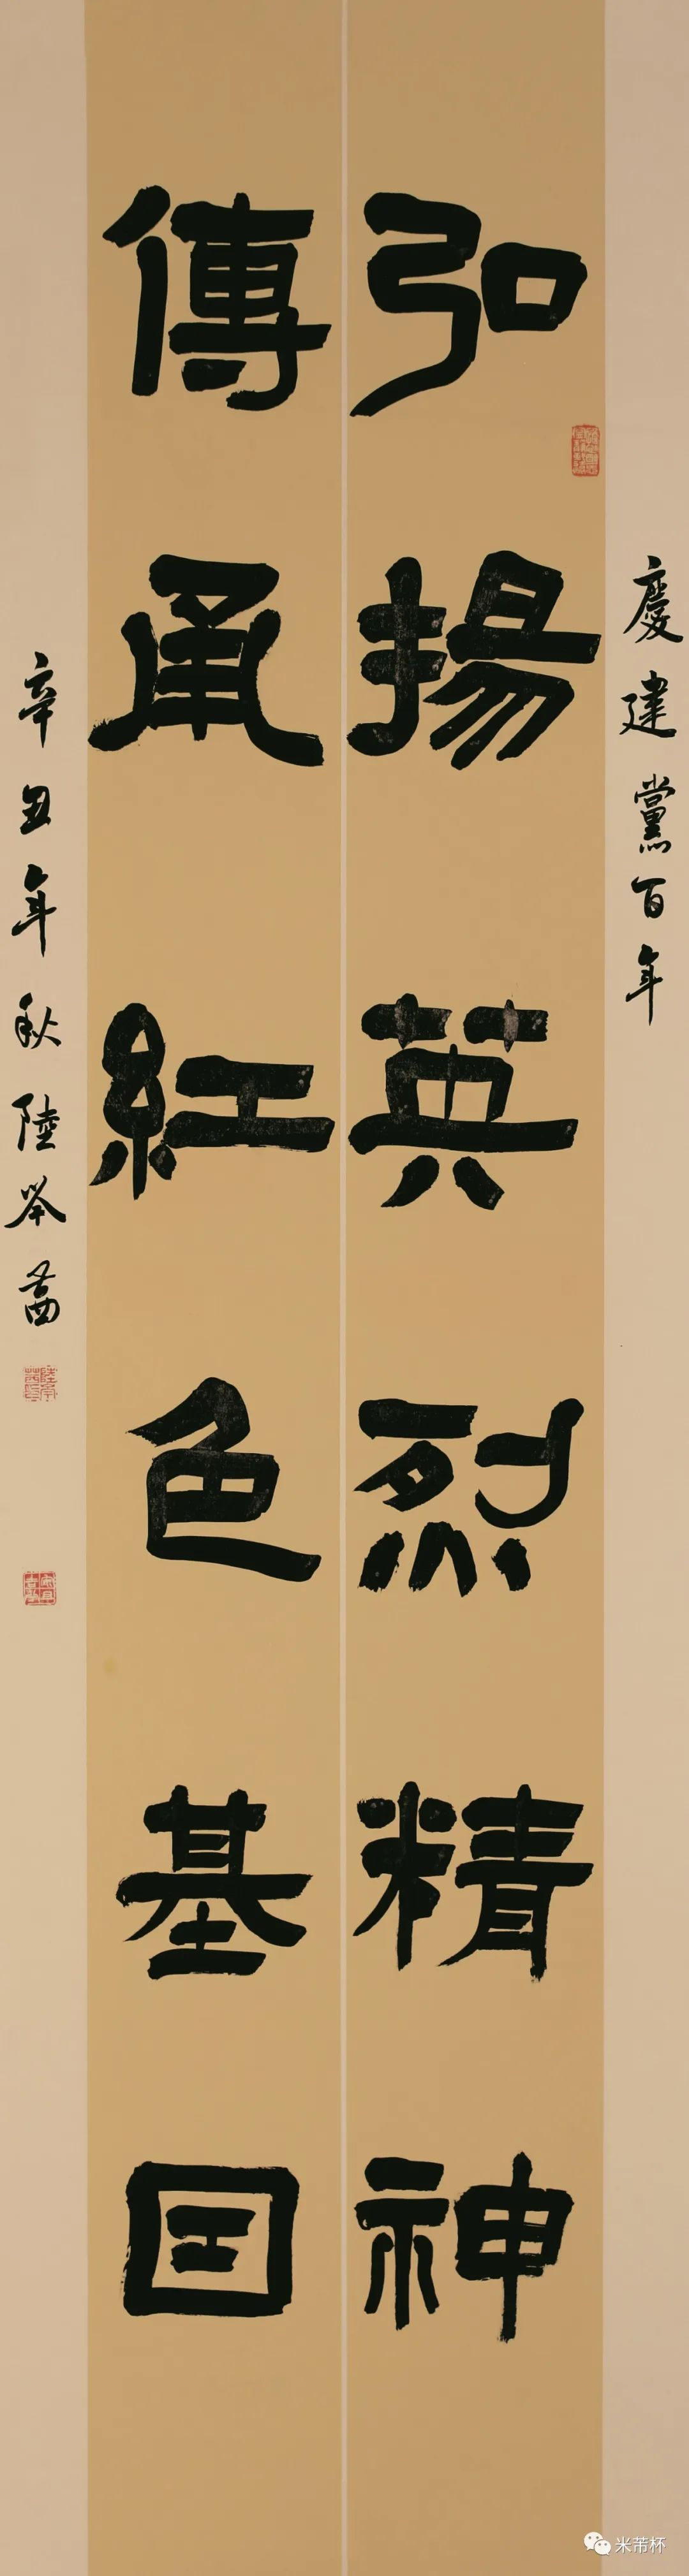 慶建黨百年
弘揚英烈精神
傳承紅色基因
辛丑年秋陸
米芾杯